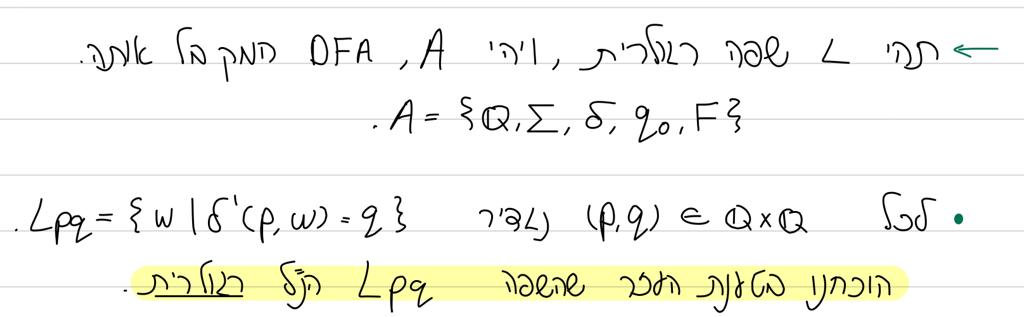 ← תהי L שפה רגולרית, ויהי A, DFA המקבל אותה.
A = {Q, Σ, δ, q₀, F}.
• לכל (p,q) ∈ Q×Q נגדיר Lpq = {w | δ'(p,w) = q}.
הוכחנו בטענת העזר שהשפה Lpq הנ"ל רגולרית.